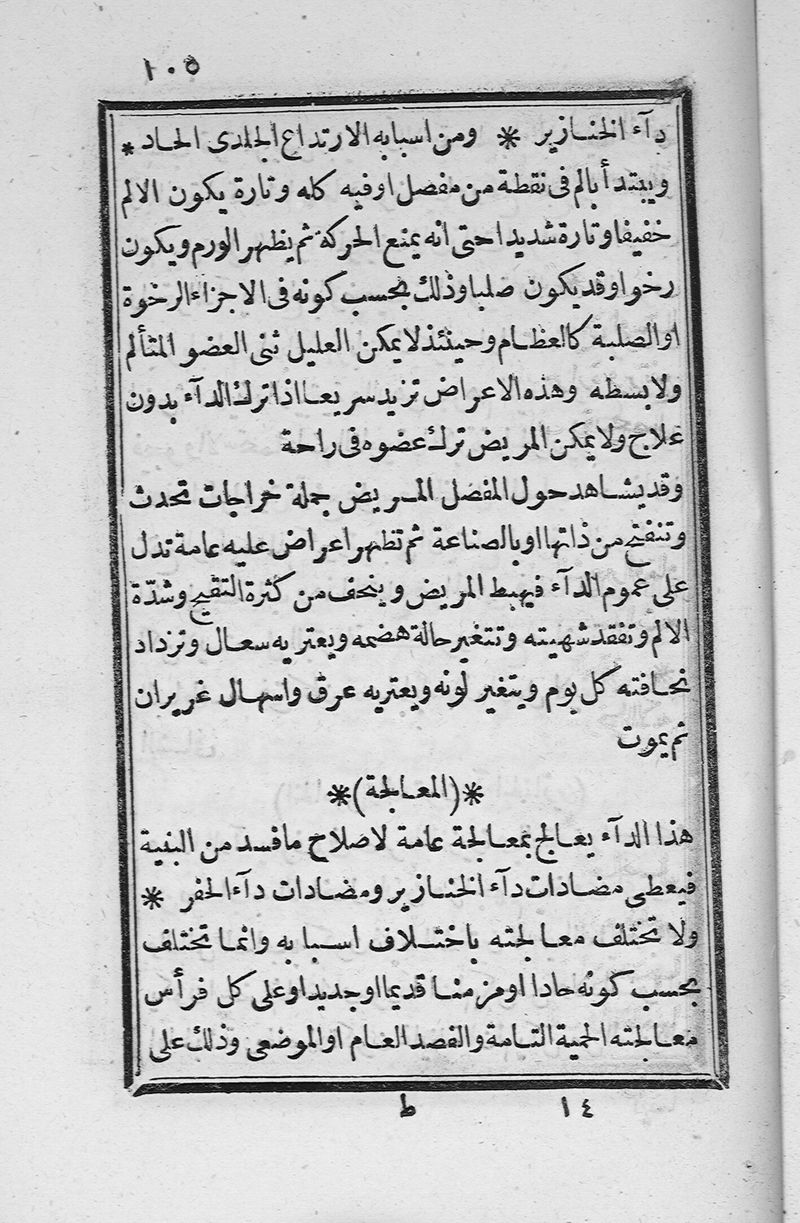 ١٠٥
دآء الخنازير * ومن اسبابه الارتداع الجلدى الحاد *
ويبتدأ بالم فى نقطة من مفصل اوفيه كله وتارة يكون الالم
خفيفا وتارة شديدا حتى انه يمنع الحركة ثم يظهر الورم ويكون
رخوا وقد يكون صلبا وذلك بحسب كونه فى الاجزاء الرخوة
او الصلبة كالعظام وحينئذ لا يمكن العليل ثنى العضو المتألم
ولا بسطه وهذه الاعراض تزيد سريعا اذا ترك الدآء بدون
علاج ولا يمكن المريض ترك عضوه فى راحة
وقد يشاهد حول المفصل المريض جملة خراجات تحدث
وتنفتح من ذاتها او بالصناعة ثم تظهر اعراض عليه عامة تدل
على عموم الدآء فيهبط المريض وينحف من كثرة التقيح وشدّة
الالم وتفقد شهيته وتتغير حالة هضمه ويعتريه سعال وتزداد
نحافته كل يوم ويتغير لونه ويعتريه عرق واسهال غريران
ثم يموت
*(المعالجة)*
هذا الدآء يعالج بمعالجة عامة لاصلاح ما فسد من البنية
فيعطى مضادات دآء الخنازير ومضادات دآء الحفر *
ولا تختلف معالجته باختلاف اسبابه وانما تختلف
بحسب كونه حادا او مزمنا قديما او جديدا وعلى كل فرأس
معالجته الحمية التامة والفصد العام او الموضعى وذلك على
١٤ ط